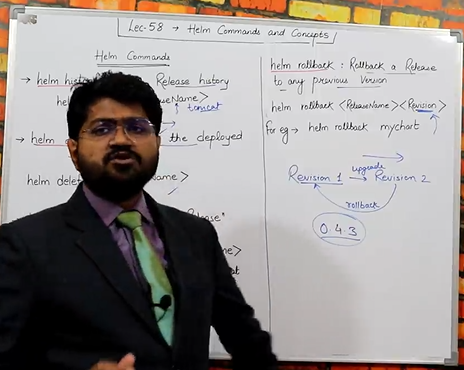 Lec-58 → Helm Commands and Concepts
Helm Commands
→ helm hist Release history
hel seName>
tomcat
→ helm the deployed
helm delet name>
elease"
me>
at
helm rollback : Rollback a Release
to any previous Version
helm rollback <ReleaseName> <Revision>
for eg → helm rollback mychart
Revision 1 → Revision 2
upgrade
rollback
0 4 3